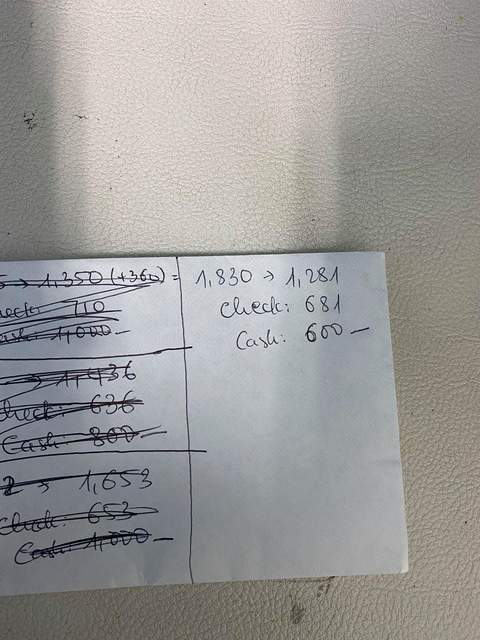 → 1,350 (+360) =
Check: 710
Cash: 1,000 —
→ 1,436
Check: 636
Cash: 800 —
2 → 1,653
Check: 653
Cash: 1,000 —
1,830 → 1,281
Check: 681
Cash: 600 —